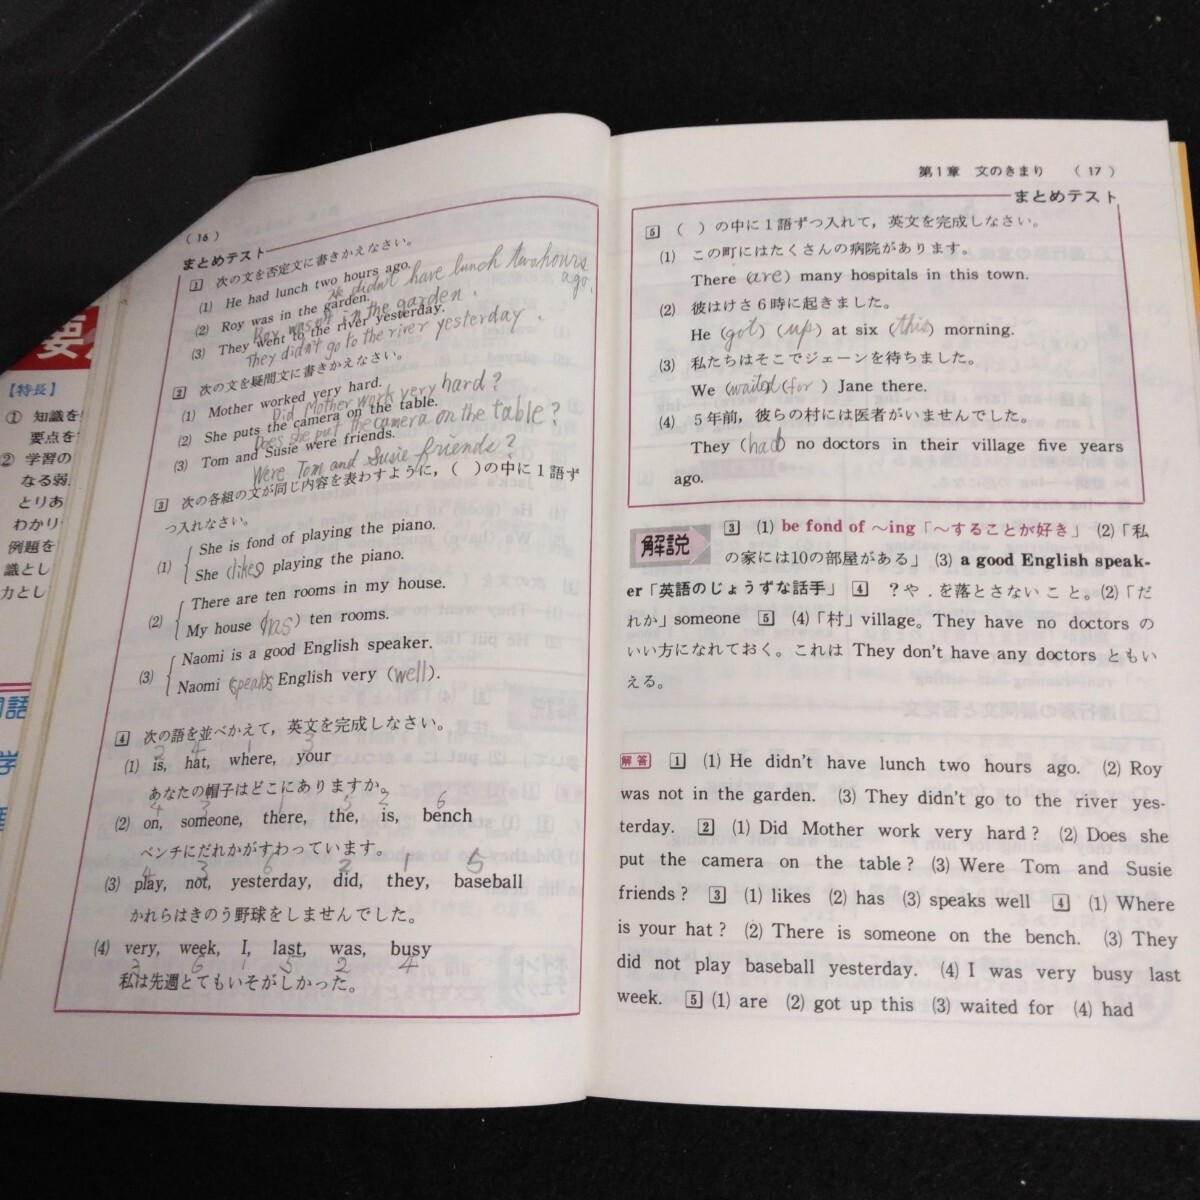 要
【特長】
① 知識を
要点を
② 学習の
なる弱
とりあ
わかり
例題を
識とし
力とし
語
学
(16)
まとめテスト
1 次の文を否定文に書きかえなさい。
(1) He had lunch two hours ago.
He didn't have lunch two hours ago.
(2) Roy was in the garden.
Roy wasn't in the garden.
(3) They went to the river yesterday.
They didn't go to the river yesterday.
2 次の文を疑問文に書きかえなさい。
(1) Mother worked very hard.
Did Mother work very hard?
(2) She puts the camera on the table.
Does she put the camera on the table?
(3) Tom and Susie were friends.
Were Tom and Susie friends?
3 次の各組の文が同じ内容を表わすように，( )の中に1語ず
つ入れなさい。
(1) She is fond of playing the piano.
She (likes) playing the piano.
(2) There are ten rooms in my house.
My house (has) ten rooms.
(3) Naomi is a good English speaker.
Naomi (speaks) English very (well).
4 次の語を並べかえて，英文を完成しなさい。
2 4 1 3
(1) is, hat, where, your
あなたの帽子はどこにありますか。
4 3 1 5 2 6
(2) on, someone, there, the, is, bench
ベンチにだれかがすわっています。
4 3 6 2 1 5
(3) play, not, yesterday, did, they, baseball
かれらはきのう野球をしませんでした。
(4) very, week, I, last, was, busy
3 6 1 5 2 4
私は先週とてもいそがしかった。
第1章 文のきまり (17)
まとめテスト
5 ( )の中に1語ずつ入れて，英文を完成しなさい。
(1) この町にはたくさんの病院があります。
There (are) many hospitals in this town.
(2) 彼はけさ6時に起きました。
He (got) (up) at six (this) morning.
(3) 私たちはそこでジェーンを待ちました。
We (waited) (for) Jane there.
(4) 5年前，彼らの村には医者がいませんでした。
They (had) no doctors in their village five years
ago.
解説 3 (1) be fond of ～ing「～することが好き」 (2)「私
の家には10の部屋がある」 (3) a good English speak-
er「英語のじょうずな話手」 4 ？や．を落とさないこと。(2)「だ
れか」someone 5 (4)「村」village。They have no doctors の
いい方になれておく。これは They don't have any doctors ともい
える。
解答 1 (1) He didn't have lunch two hours ago. (2) Roy
was not in the garden. (3) They didn't go to the river yes-
terday. 2 (1) Did Mother work very hard? (2) Does she
put the camera on the table? (3) Were Tom and Susie
friends? 3 (1) likes (2) has (3) speaks well 4 (1) Where
is your hat? (2) There is someone on the bench. (3) They
did not play baseball yesterday. (4) I was very busy last
week. 5 (1) are (2) got up this (3) waited for (4) had